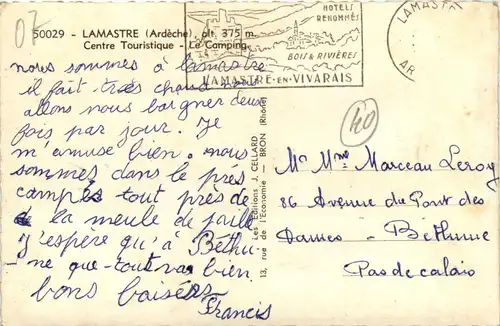 07
50029 - LAMASTRE (Ardèche), alt. 375 m.
Centre Touristique - Le Camping
HOTELS
RENOMMÉS
BOIS & RIVIÈRES
LAMASTRE-EN-VIVARAIS
LAMASTRE
AR
nous sommes à lamastre
il fait très chaud nous
allons nous baigner deux
fois par jour. Je
m'amuse bien. nous
sommes dans le près
campés tout près de
la meule de paille
J'espère qu'à Béthu-
ne que tout va bien
bons baisers
Francis
Les Editions J. CELLARD
13, rue de l'Economie - BRON (Rhône)
40
Mr Mme Marceau Leroy
86 Avenue du Pont des
Dames - Bethune
Pas de calais